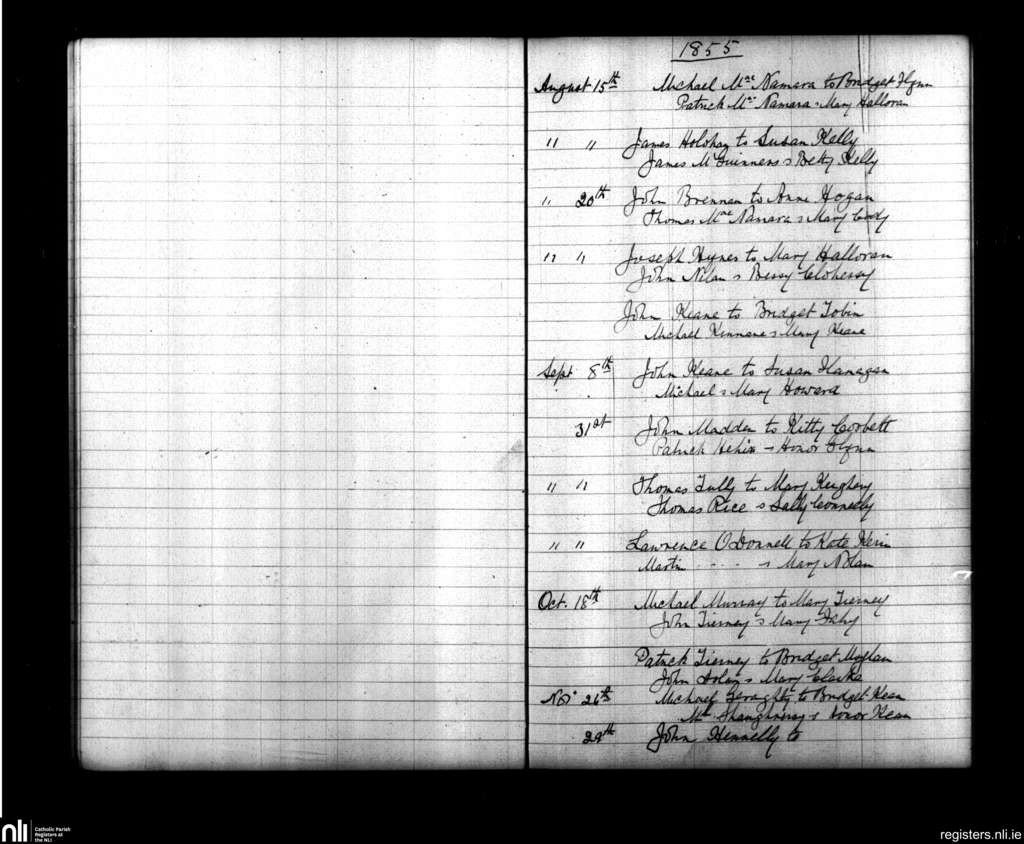 1855
August 15th Michael Mac Namara to Bridget Flynn
Patrick Mac Namara & Mary Halloran
" " James Holohan to Susan Kelly
James McGuinness & Betty Kelly
" 20th John Brennan to Anne Hogan
Thomas Mac Namara & Mary Cody
" " Joseph Hynes to Mary Halloran
John Nilan & Bessy Clohessy
John Keane to Bridget Tobin
Michael Kinnane & Mary Keane
Sept 8th John Keane to Susan Flanagan
Michael & Mary Howard
31st John Madden to Kitty Corbett
Patrick & Honor Flynn
" " Thomas Tully to Mary
Thomas Rice & Sally Connelly
" " Lawrence O'Donnell to Kate Kerin
Martin - - - - & Mary Nolan
Oct. 18th Michael Murray to Mary Tierney
John Tierney & Mary Fahy
Patrick Tierney to Bridget Moylan
John & Mary Clarke
Nov 26th Michael Geraghty to Bridget Kean
Shaughnessy & Honor Kean
29th John Hennelly to
nli Catholic Parish
Registers at
the NLI
registers.nli.ie